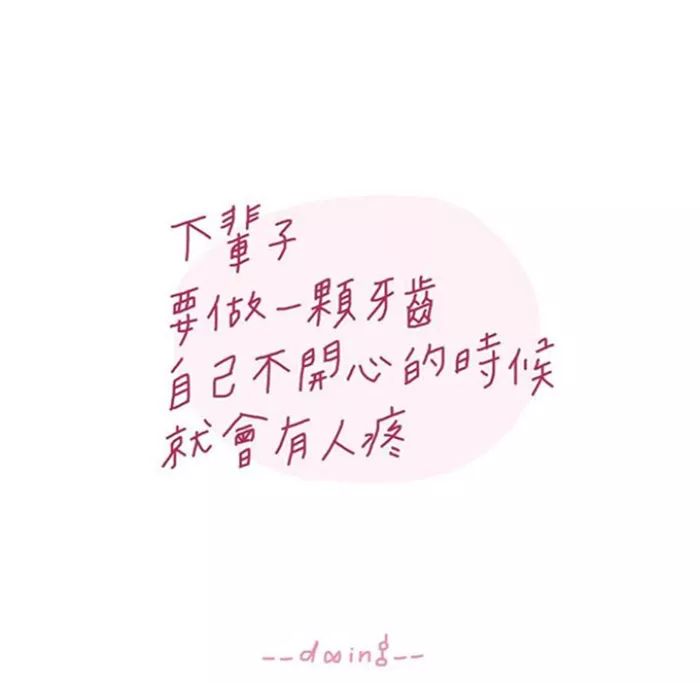 下輩子
要做一顆牙齒
自己不開心的時候
就會有人疼
--dooing--